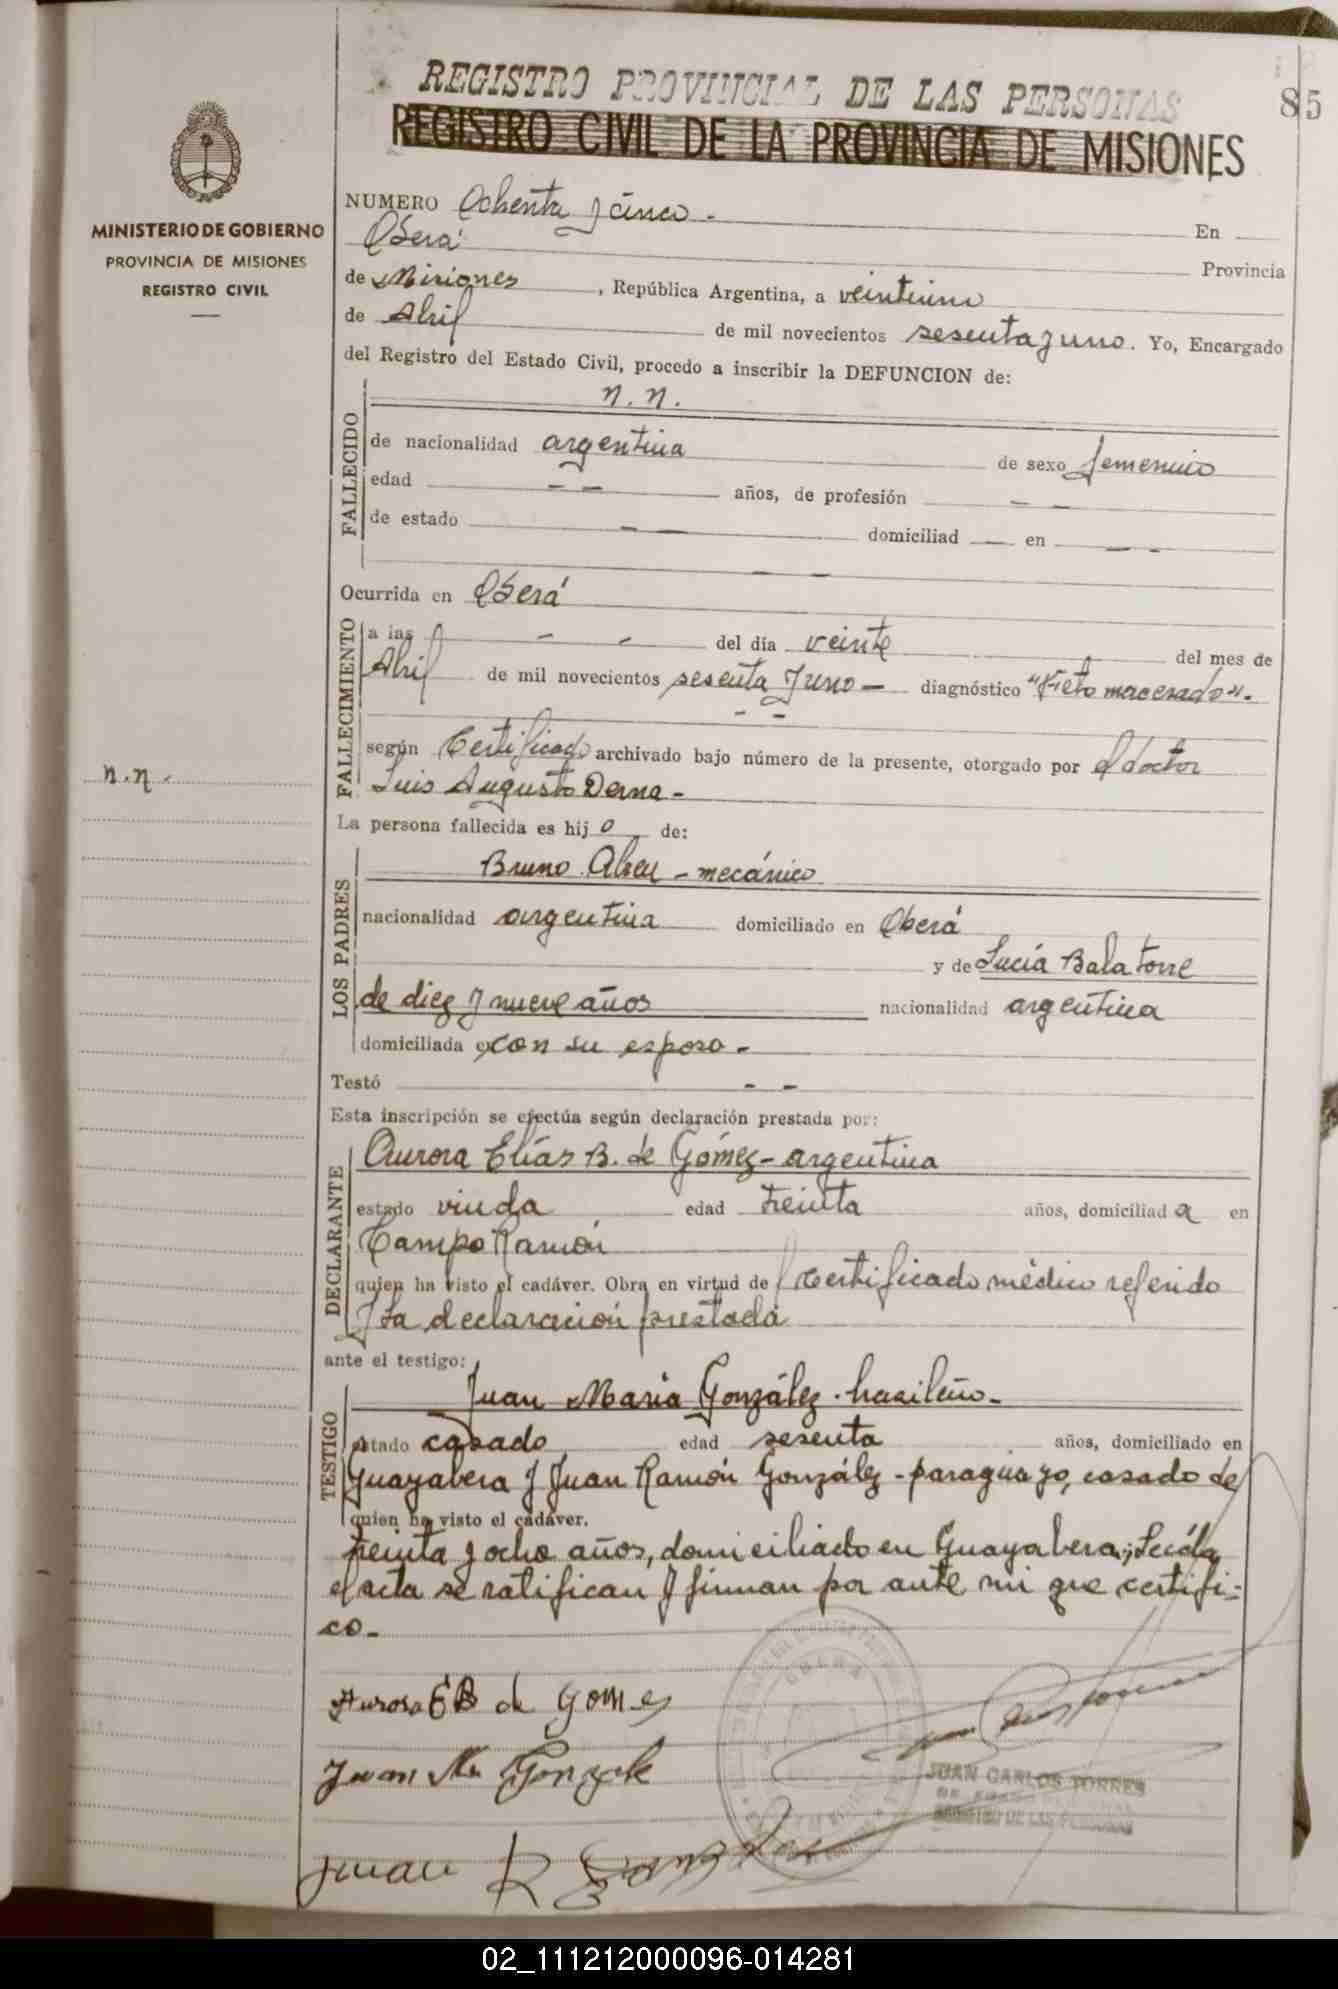 REGISTRO PROVINCIAL DE LAS PERSONAS
85
REGISTRO CIVIL DE LA PROVINCIA DE MISIONES
MINISTERIO DE GOBIERNO
PROVINCIA DE MISIONES
REGISTRO CIVIL
NUMERO Ochenta y cinco - En
Oberá Provincia
de Misiones, República Argentina, a veintiuno
de Abril de mil novecientos sesenta y uno. Yo, Encargado
del Registro del Estado Civil, procedo a inscribir la DEFUNCION de:
n. n.
FALLECIDO
de nacionalidad argentina de sexo femenino
edad -- años, de profesión --
de estado -- domiciliad — en --
--
Ocurrida en Oberá
FALLECIMIENTO
a las -- del día veinte del mes de
Abril de mil novecientos sesenta y uno — diagnóstico "Feto macerado".
--
según Certificado archivado bajo número de la presente, otorgado por el doctor
Luis Augusto Derna -
n. n.
La persona fallecida es hij o de:
LOS PADRES
Bruno Abreu - mecánico
nacionalidad argentina domiciliado en Oberá
y de Lucía Balatorre
de diez y nueve años nacionalidad argentina
domiciliada con su esposo -
Testó --
Esta inscripción se efectúa según declaración prestada por:
DECLARANTE
Aurora Elías B. de Gómez - argentina
estado viuda edad treinta años, domiciliad a en
Campo Ramón
quien ha visto el cadáver. Obra en virtud de certificado médico referido
y la declaración prestada
ante el testigo:
TESTIGO
Juan María González - brasileño -
estado casado edad sesenta años, domiciliado en
Guayabera y Juan Ramón González - paraguayo, casado de
quien ha visto el cadáver.
treinta y ocho años, domiciliado en Guayabera; Leída
el acta se ratifican y firman por ante mi que certifi-
co -
Aurora E B de Gomes
Juan Ma Gonzale
JUAN CARLOS TORRES
REGISTRO DE LAS PERSONAS
Juan R Gonzalez
02_111212000096-014281